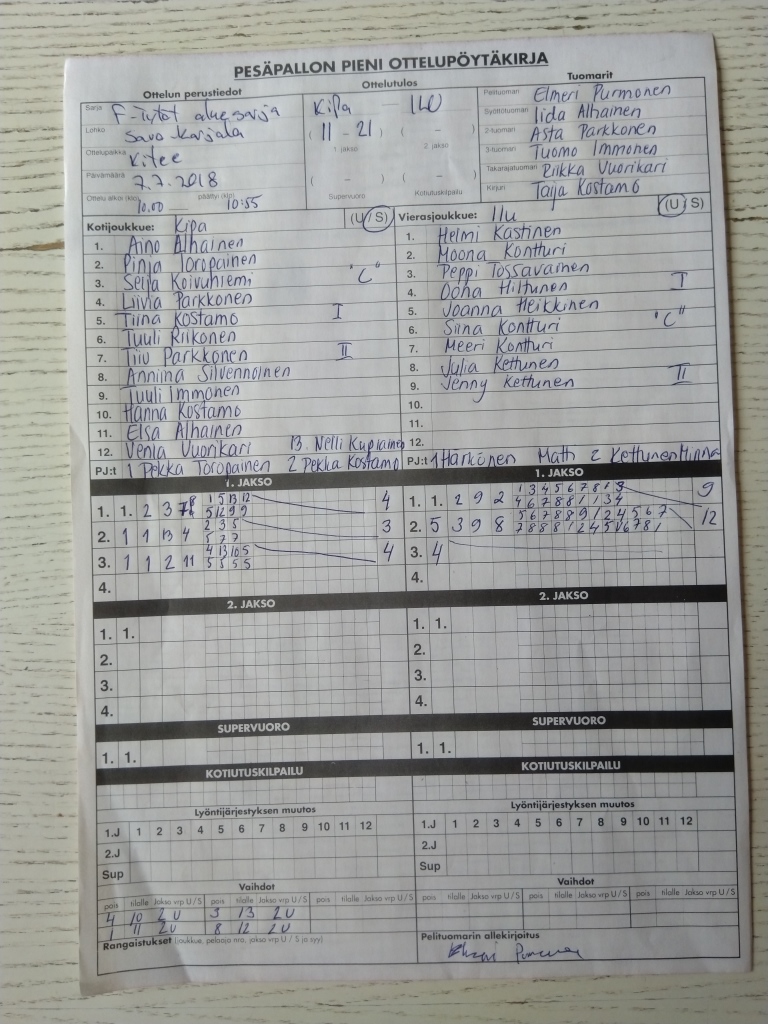 PESÄPALLON PIENI OTTELUPÖYTÄKIRJA
Ottelun perustiedot
Ottelutulos
Tuomarit
Sarja F-tytöt aluesarja
Lohko Savo-Karjala
Ottelupaikka Kitee
Päivämäärä 7.7.2018
Ottelu alkoi (klo) 10.00 päättyi (klo) 10:55
KiPa — ILU
(11 - 21) ( - )
1. jakso 2. jakso
( - ) ( - )
Supervuoro Kotiutuskilpailu
Pelituomari Elmeri Purmonen
Syöttötuomari Iida Alhainen
2-tuomari Asta Parkkonen
3-tuomari Tuomo Immonen
Takarajatuomari Riikka Vuorikari
Kirjuri Taija Kostamo
Kotijoukkue: Kipa (U/S)
1. Aino Alhainen
2. Pinja Toropainen
3. Seija Koivuniemi "C"
4. Liivia Parkkonen
5. Tiina Kostamo I
6. Tuuli Riikonen
7. Tiiu Parkkonen II
8. Anniina Silvennoinen
9. Tuuli Immonen
10. Hanna Kostamo
11. Elsa Alhainen
12. Venla Vuorikari 13. Nelli Kupiainen
PJ:t 1 Pekka Toropainen 2 Pekka Kostamo
Vierasjoukkue: Ilu (U/S)
1. Helmi Kastinen
2. Moona Kontturi
3. Peppi Tossavainen
4. Oona Hiltunen I
5. Joanna Heikkinen
6. Siina Kontturi "C"
7. Meeri Kontturi
8. Julia Kettunen
9. Jenny Kettunen II
10.
11.
12.
PJ:t 1 Härkönen Math 2 Kettunen Minna
1. JAKSO
1. 1. 2 3 7 1 5 13 12 4
5 12 9 9
2. 1 1 13 4 2 3 5 3
5 7 7
3. 1 1 2 11 4 13 10 5 4
5 5 5 5
4.
1. JAKSO
1. 1. 2 9 2 1 3 4 5 6 7 8 1 3 9
4 6 7 8 8 1 1 3 4
2. 5 3 9 8 5 6 7 8 8 9 1 2 4 5 6 7 12
7 8 8 8 1 2 4 5 6 7 8 1
3. 4
4.
2. JAKSO
1. 1.
2.
3.
4.
2. JAKSO
1. 1.
2.
3.
4.
SUPERVUORO
1. 1.
SUPERVUORO
1. 1.
KOTIUTUSKILPAILU
KOTIUTUSKILPAILU
Lyöntijärjestyksen muutos
1.J 1 2 3 4 5 6 7 8 9 10 11 12
2.J
Sup
Lyöntijärjestyksen muutos
1.J 1 2 3 4 5 6 7 8 9 10 11 12
2.J
Sup
Vaihdot
pois tilalle Jakso vrp U/S pois tilalle Jakso vrp U/S pois tilalle Jakso vrp U/S
4 10 2U 3 13 2U
1 11 2U 8 12 2U
Vaihdot
pois tilalle Jakso vrp U/S pois tilalle Jakso vrp U/S pois tilalle Jakso vrp U/S
Rangaistukset (joukkue, pelaaja nro, jakso vrp U / S ja syy)
Pelituomarin allekirjoitus